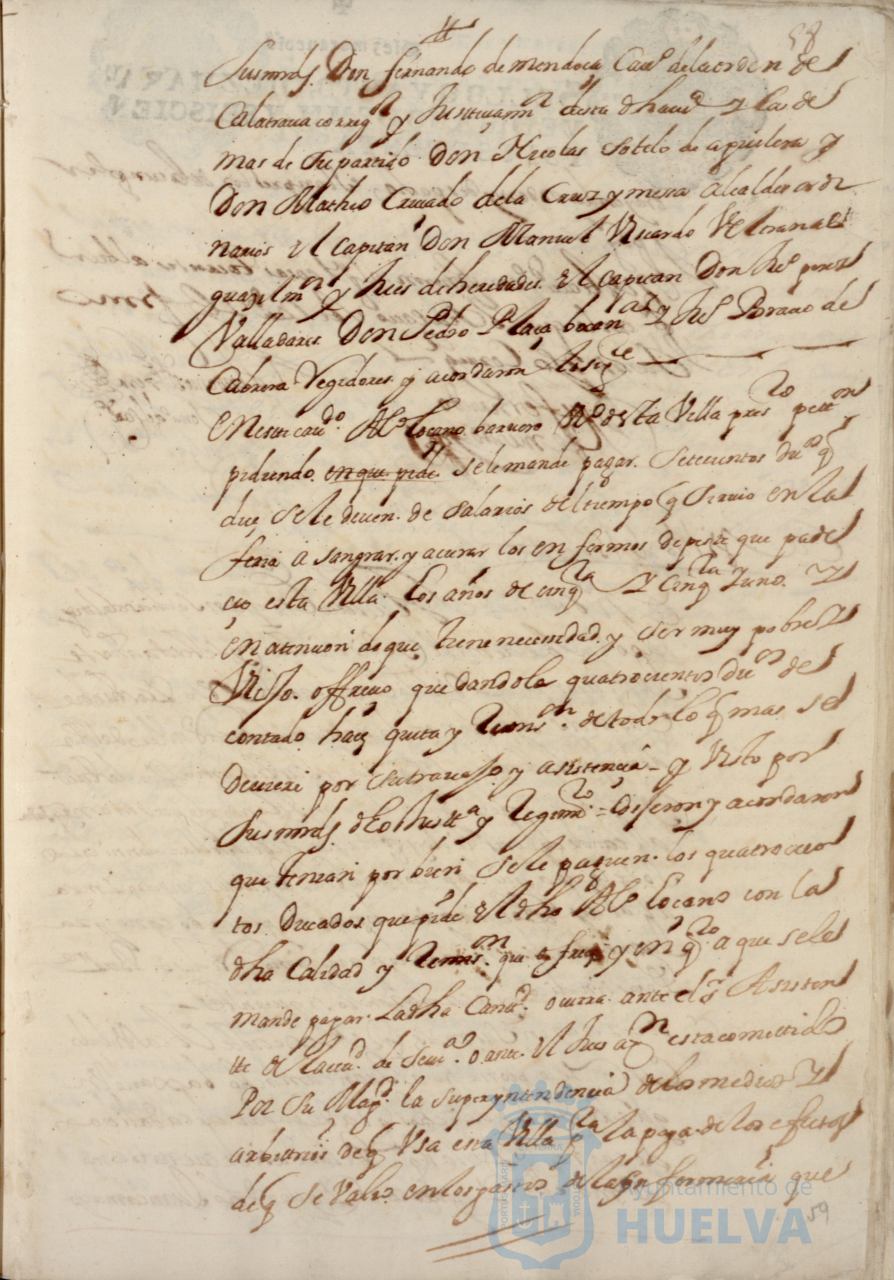 58
Susmrds. Don fernando de mendoca Cauo. dela orden de
Calatraua correg.or y Justicia mor. desta dha uid. y las de
mas de su partido Don Nicolas Sotelo de aguilera y
Don Matheo Criado dela Cruz y messa Alcaldes ordi
narios el capitan Don Manuel
guazil mor. y Jues de heredades. el capitan Don Jhs. perez
Valladares Don Pedro y Jhs. Brauo de
Cabrera Regidores y acordaron lo sigte.
En este cauo. Alo. Locano baruero Vo. desta Villa presto. petton.
pidiendo. en que pide se le mande pagar. Setecientos dus. q
dice, Se le deuen. de Salarios del tiempo q Siruio en la
feria a sangrar. y acurar los enfermos de peste que pade
cio esta Villa. Los años de cinqta. y Cinqta. y uno. y
en atencion de que tiene necesidad. y Ser muy pobre
Visso. offrecio que dandole quatrocientos dus. de
contado. hace quita y Remison. de todo lo q mas se
deuiere por su trauajo. y asistencia - y Visto por
Susmrds. dho Justta. y Regimto. = dijeron y acordaron
que tenian por bien Se le paguen. los quatrocien
tos. Ducados que pide el dho Alo. Locano con la
dha Calidad y Remison. que y en qto. a que se le
mande pagar. La dha Cantd. ocurra. ante el Sr. Asisten
te de la ciud. de Seua. o ante. el Jues a qn esta cometido
Por Su Magd. la superyntendencia de los medios y
arbitrios de q Vsa esta Villa pa. la paga de los efectos
de q Se Valio. en los gastos de la enfermeria que
Ayuntamiento de
HUELVA
59